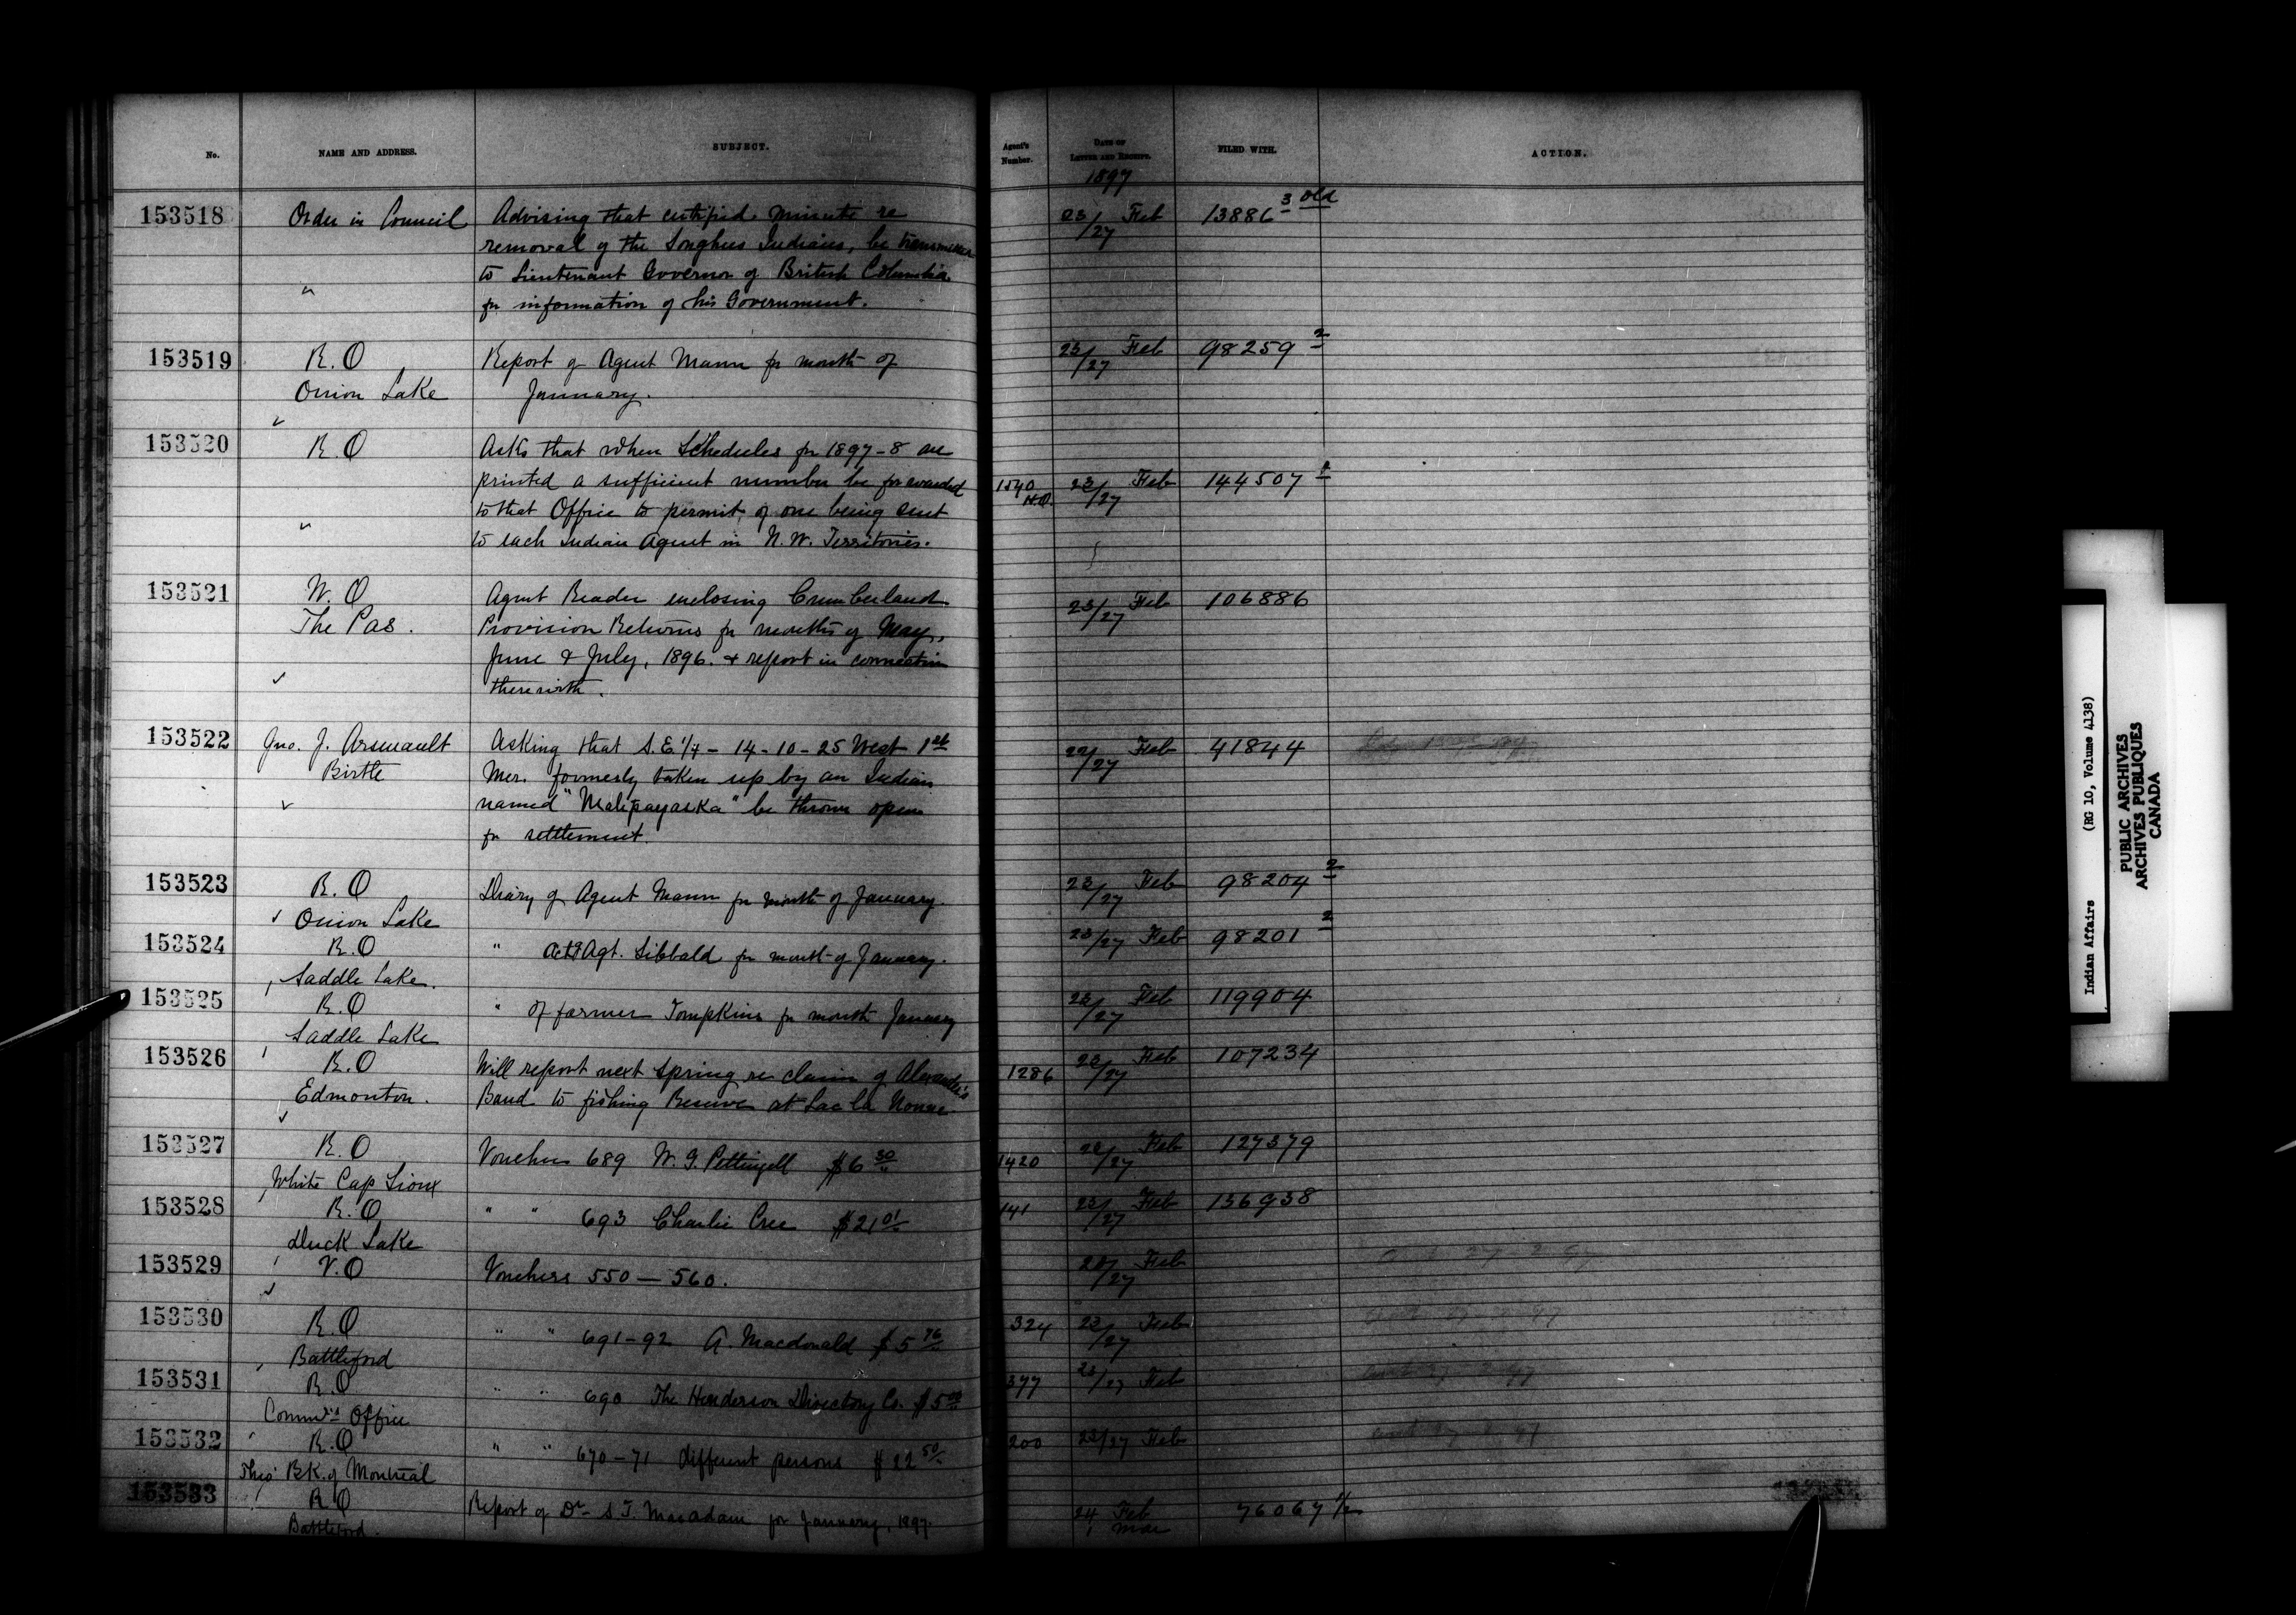 No. NAME AND ADDRESS. SUBJECT. Agent's Number. DATE OF LETTER AND RECEIPT. FILED WITH. ACTION.
1897
153518 Order in Council Advising that certified minute re 23/27 Feb 13886 3 old
removal of the Songhees Indians, be
to Lieutenant Governor of British Columbia
" for information of his Government.
153519 R.O Report of Agent Mann for month of 23/27 Feb 98259 2
Onion Lake January.
153520 R.O Asks that when Schedules for 1897-8 are
printed a sufficient number be forwarded 1540 H.O. 23/27 Feb 144507
to that Office to permit of one being sent
" to each Indian Agent in N.W. Territories.
153521 W.O Agent Reader enclosing Cumberland 23/27 Feb 106886
The Pas. Provision Returns for months of May,
June & July, 1896. & report in connection
✓ therewith.
153522 Jno. J. Arsenault Asking that S.E. 1/4 - 14-10-25 West 1st 22/27 Feb 41844
Birtle Mer. formerly taken up by an Indian
✓ named "Mahpayaska" be thrown open
for settlement.
153523 R.O Diary of Agent Mann for month of January. 23/27 Feb 98204 2
✓ Onion Lake
153524 R.O " Actg Agt. Sibbald for month of January. 23/27 Feb 98201 2
Saddle Lake.
153525 R.O " of farmer Tompkins for month January 23/27 Feb 119904
Saddle Lake
153526 R.O Will report next Spring re claim of Alexander's 1286 23/27 Feb 107234
Edmonton. Band to fishing Reserve at Lac la Nonne.
153527 R.O Voucher 689 W. G. Pettingell $6 30 1420 23/27 Feb 127379
White Cap Sioux
153528 R.O " " 693 Charlie Cree $21 01 141 23/27 Feb 136938
Duck Lake
153529 V.O Vouchers 550 — 560. 20/27 Feb
153530 R.O " " 691-92 A. Macdonald $5 76 324 23/27 Feb
Battleford
153531 R.O " " 690 The Henderson Directory Co. $5 00 377 23/27 Feb
Commr's Office
153532 R.O " " 670-71 different persons $22 50 200 23/27 Feb
Thro' BK. of Montreal
153533 R.O Report of Dr. S.T. Macadam for January, 1897. 24 Feb 76067 1/2
Battleford. 1 Mar
Indian Affairs (RG 10, Volume 4138)
PUBLIC ARCHIVES
ARCHIVES PUBLIQUES
CANADA